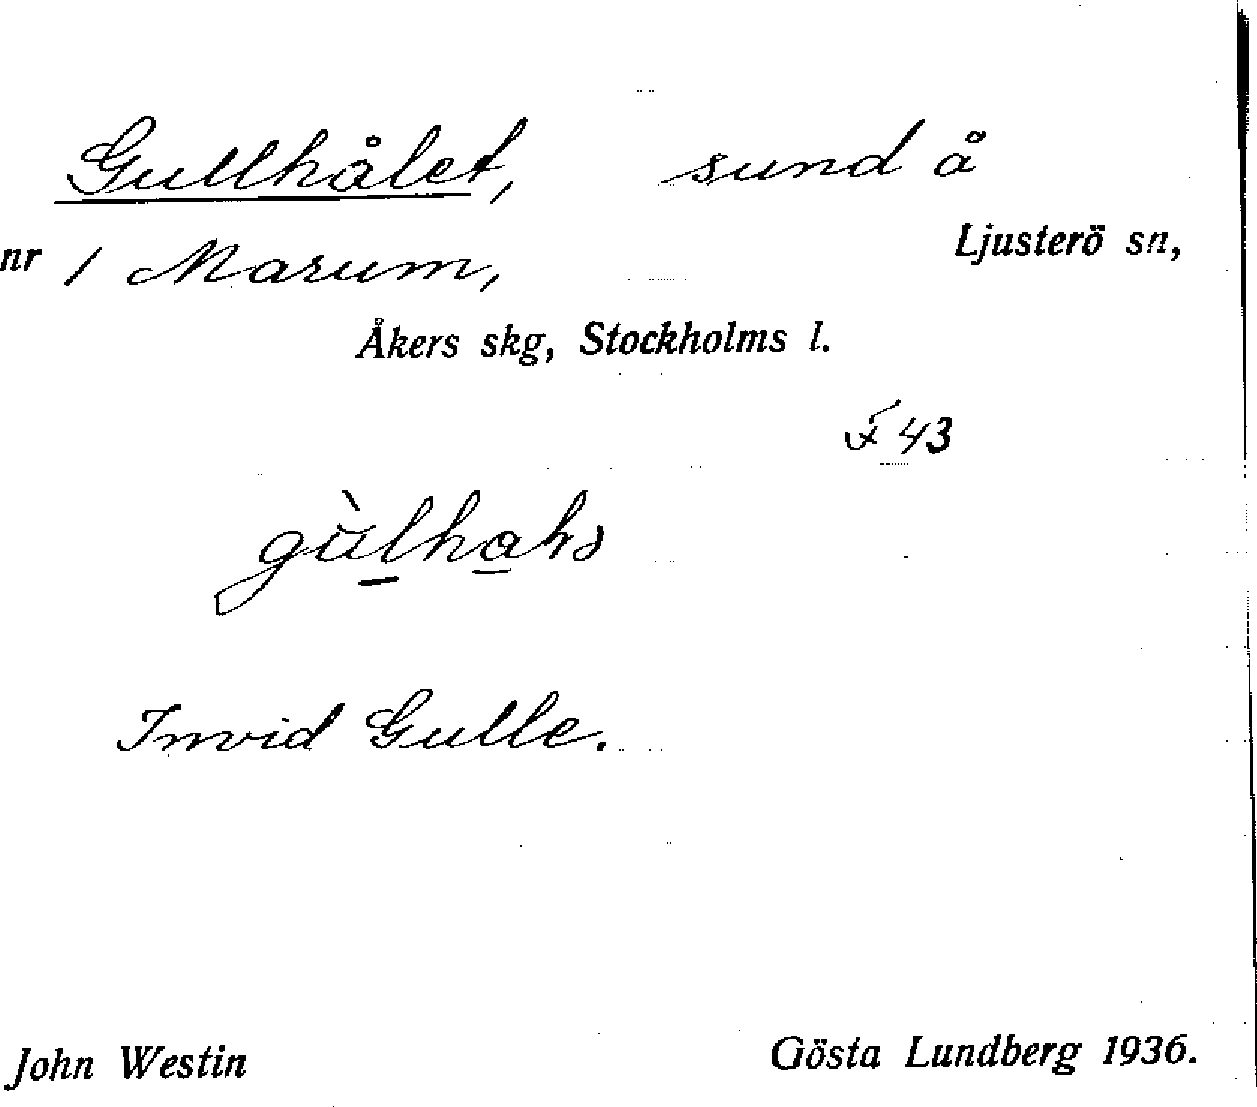 Gullhålet, sund å
nr 1 Marum, Ljusterö sn,
Åkers skg, Stockholms l.
43
Invid Gulle.
John Westin Gösta Lundberg 1936.